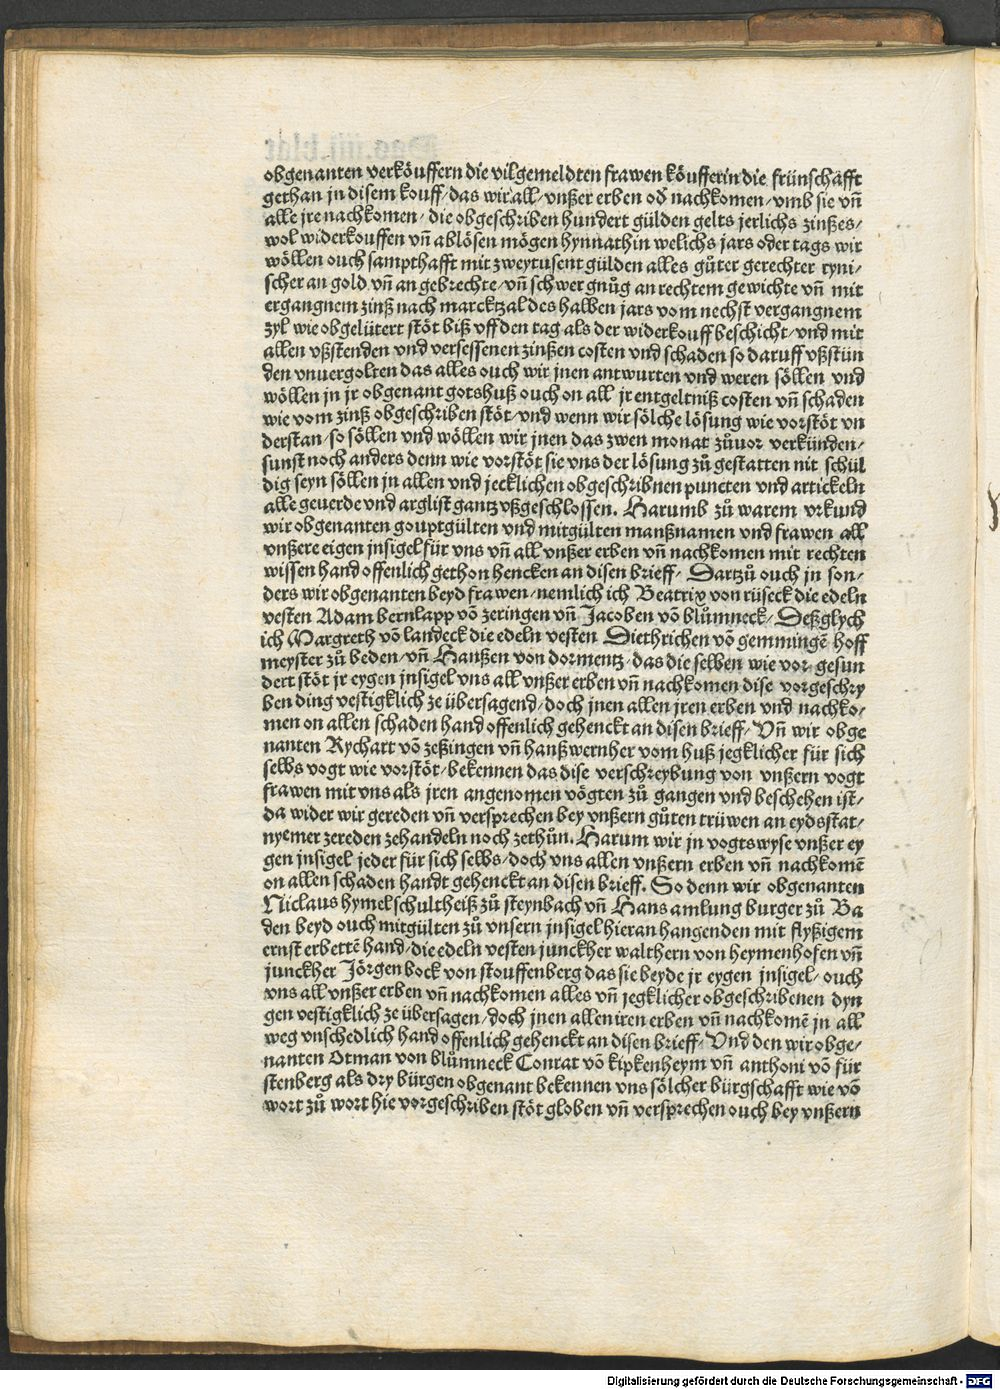 obgenanten verköuffern die vilgemeldten frawen köufferin die frünschafft
gethan jn disem kouff/das wir all/vnßer erben od̕ nachkomen/vmb sie vn̄
alle jre nachkomen/die obgeschriben hundert gülden gelts jerlichs zinßes/
wol widerkouffen vn̄ ablösen mögen hynnathin welichs jars oder tags wir
wöllen ouch sampthafft mit zweytusent gülden alles gůter gerechter ryni/
scher an gold vn̄ an gebrechte/vn̄ schwer gnůg an rechtem gewichte vn̄ mit
ergangnem zinß nach marcktzal des halben jars vom nechst vergangnem
zyl wie obgelütert stöt biß vff den tag als der widerkouff beschicht/vnd mit
allen vßstenden vnd versessenen zinßen costen vnd schaden so daruff vßstün
den vnuergolten das alles ouch wir jnen antwurten vnd weren söllen vnd
wöllen jn jr obgenant gotshuß ouch on all jr entgeltniß costen vn̄ schaden
wie vom zinß obgeschriben stöt/vnd wenn wir sölche lösung wie vorstöt vn
derstan/so söllen vnd wöllen wir jnen das zwen monat zůuor verkünden/
sunst noch anders denn wie vorstöt sie vns der lösung zů gestatten nit schül
dig seyn söllen jn allen vnd jecklichen obgeschribnen puncten vnd artickeln
alle geuerde vnd arglist gantz vßgeschlossen. Harumb zů warem vrkund
wir obgenanten gouptgülten vnd mitgülten manßnamen vnd frawen all
vnßere eigen jnsigel für vns vn̄ all vnßer erben vn̄ nachkomen mit rechten
wissen hand offenlich gethon hencken an disen brieff/ Dartzů ouch jn son/
ders wir obgenanten beyd frawen/nemlich ich Beatrix von rüseck die edeln
vesten Adam bernlapp vō zeringen vn̄ Jacoben vō blůmneck/ Deßglych
ich Margreth vō landeck die edeln vesten Diethrichen vō gemmingē hoff
meyster zů beden/vn̄ Hanßen von dormentz/das die selben wie vor gesun
dert stöt jr eygen jnsigel vns all vnßer erben vn̄ nachkomen dise vorgeschry
ben ding vestigklich ze übersagend/doch jnen allen jren erben vnd nachko/
men on allen schaden hand offenlich gehenckt an disen brieff/ Vn̄ wir obge
nanten Rychart vō zeßingen vn̄ hanß wernher vom huß jegklicher für sich
selbs vogt wie vorstöt/bekennen das dise verschreybung von vnßern vogt
frawen mit vns als jren angenomen vögten zů gangen vnd beschehen ist/
da wider wir gereden vn̄ versprechen bey vnßern gůten trüwen an eydsstat/
nyemer zereden zehandeln noch zethůn. Harum wir jn vogtswyse vnßer ey
gen jnsigel jeder für sich selbs/doch vns allen vnßern erben vn̄ nachkomē
on allen schaden handt gehenckt an disen brieff. So denn wir obgenanten
Niclaus hymel schultheiß zů steynbach vn̄ Hans amlung burger zů Ba
den beyd ouch mitgülten zů vnsern jnsigel hieran hangenden mit flyßigem
ernst erbettē hand/die edeln vesten junckher walthern von heymenhofen vn̄
junckher Jörgen bock von stouffenberg das sie beyde jr eygen jnsigel/ouch
vns all vnßer erben vn̄ nachkomen alles vn̄ jegklicher obgeschribenen dyn
gen vestigklich ze übersagen/doch jnen allen iren erben vn̄ nachkomē jn all
weg vnschedlich hand offenlich gehenckt an disen brieff/ Vnd den wir obge/
nanten Otman von blůmneck Conrat vō kipkenheym vn̄ anthoni vō für
stenberg als dry bürgen obgenant bekennen vns sölcher bürgschafft wie vō
wort zů wort hie vorgeschriben stöt globen vn̄ versprechen ouch bey vnßern
Digitalisierung gefördert durch die Deutsche Forschungsgemeinschaft - DFG